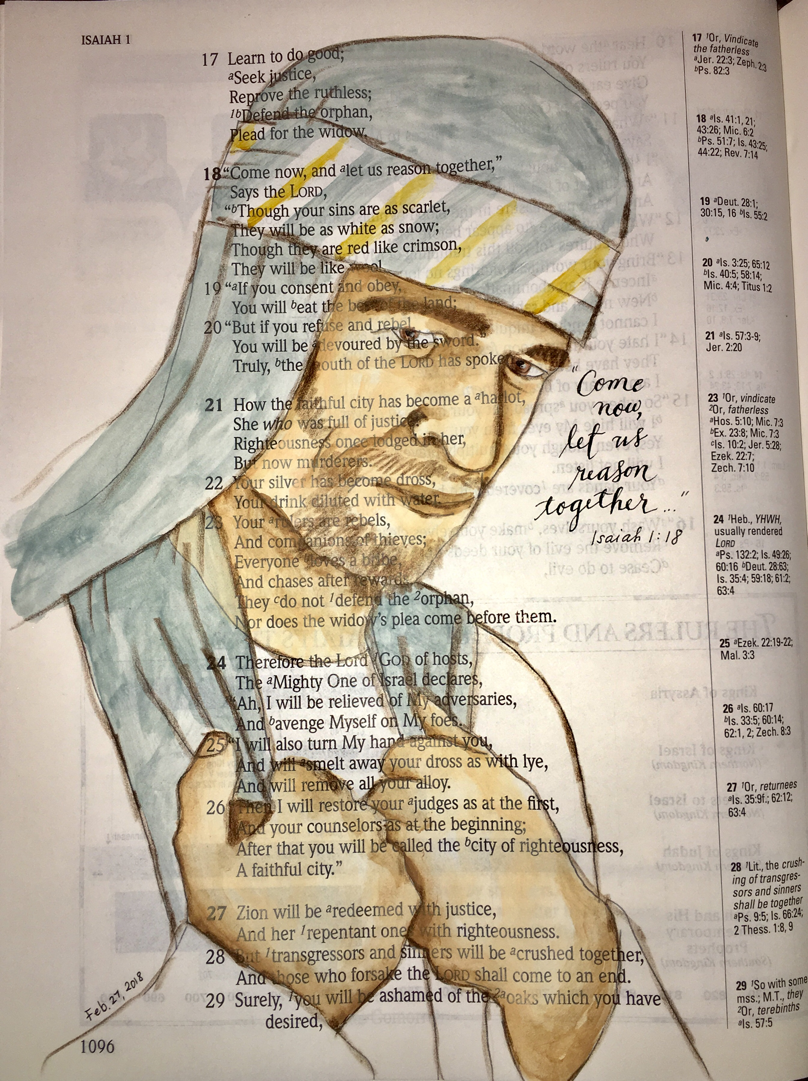 ISAIAH 1
17 Learn to do good;
aSeek justice,
Reprove the ruthless;
1bDefend the orphan,
Plead for the widow.
18 “Come now, and alet us reason together,”
Says the LORD,
“bThough your sins are as scarlet,
They will be as white as snow;
Though they are red like crimson,
They will be like wool.
19 “aIf you consent and obey,
You will beat the best of the land;
20 “But if you refuse and rebel,
You will be adevoured by the sword.”
Truly, bthe mouth of the LORD has spoken.
21 How the faithful city has become a aharlot,
She who was full of justice!
Righteousness once lodged in her,
But now murderers.
22 Your silver has become dross,
Your drink diluted with water.
23 Your arulers are rebels,
And companions of thieves;
Everyone bloves a bribe
And chases after rewards.
They cdo not 1defend the 2orphan,
Nor does the widow's plea come before them.
24 Therefore the Lord 1GOD of hosts,
The aMighty One of Israel declares,
“Ah, I will be relieved of My adversaries,
And bavenge Myself on My foes.
25 “I will also turn My hand against you,
And will asmelt away your dross as with lye,
And will remove all your alloy.
26 Then I will restore your ajudges as at the first,
And your counselors as at the beginning;
After that you will be called the bcity of righteousness,
A faithful city.”
27 Zion will be aredeemed with justice,
And her 1repentant ones with righteousness.
28 But 1transgressors and sinners will be acrushed together,
And those who forsake the LORD shall come to an end.
29 Surely, 1you will be ashamed of the 2aoaks which you have
desired,
“Come
now,
let us
reason
together...”
Isaiah 1:18
Feb. 27, 2018
1096
17 1Or, Vindicate
the fatherless
aJer. 22:3; Zeph. 2:3
bPs. 82:3
18 aIs. 41:1, 21;
43:26; Mic. 6:2
bPs. 51:7; Is. 43:25;
44:22; Rev. 7:14
19 aDeut. 28:1;
30:15, 16 bIs. 55:2
20 aIs. 3:25; 65:12
bIs. 40:5; 58:14;
Mic. 4:4; Titus 1:2
21 aIs. 57:3-9;
Jer. 2:20
23 1Or, vindicate
2Or, fatherless
aHos. 5:10; Mic. 7:3
bEx. 23:8; Mic. 7:3
cIs. 10:2; Jer. 5:28;
Ezek. 22:7;
Zech. 7:10
24 1Heb., YHWH,
usually rendered
LORD
aPs. 132:2; Is. 49:26;
60:16 bDeut. 28:63;
Is. 35:4; 59:18; 61:2;
63:4
25 aEzek. 22:19-22;
Mal. 3:3
26 aIs. 60:17
bIs. 33:5; 60:14;
62:1, 2; Zech. 8:3
27 1Or, returnees
aIs. 35:9f.; 62:12;
63:4
28 1Lit., the crush-
ing of transgres-
sors and sinners
shall be together
aPs. 9:5; Is. 66:24;
2 Thess. 1:8, 9
29 1So with some
mss.; M.T., they
2Or, terebinths
aIs. 57:5